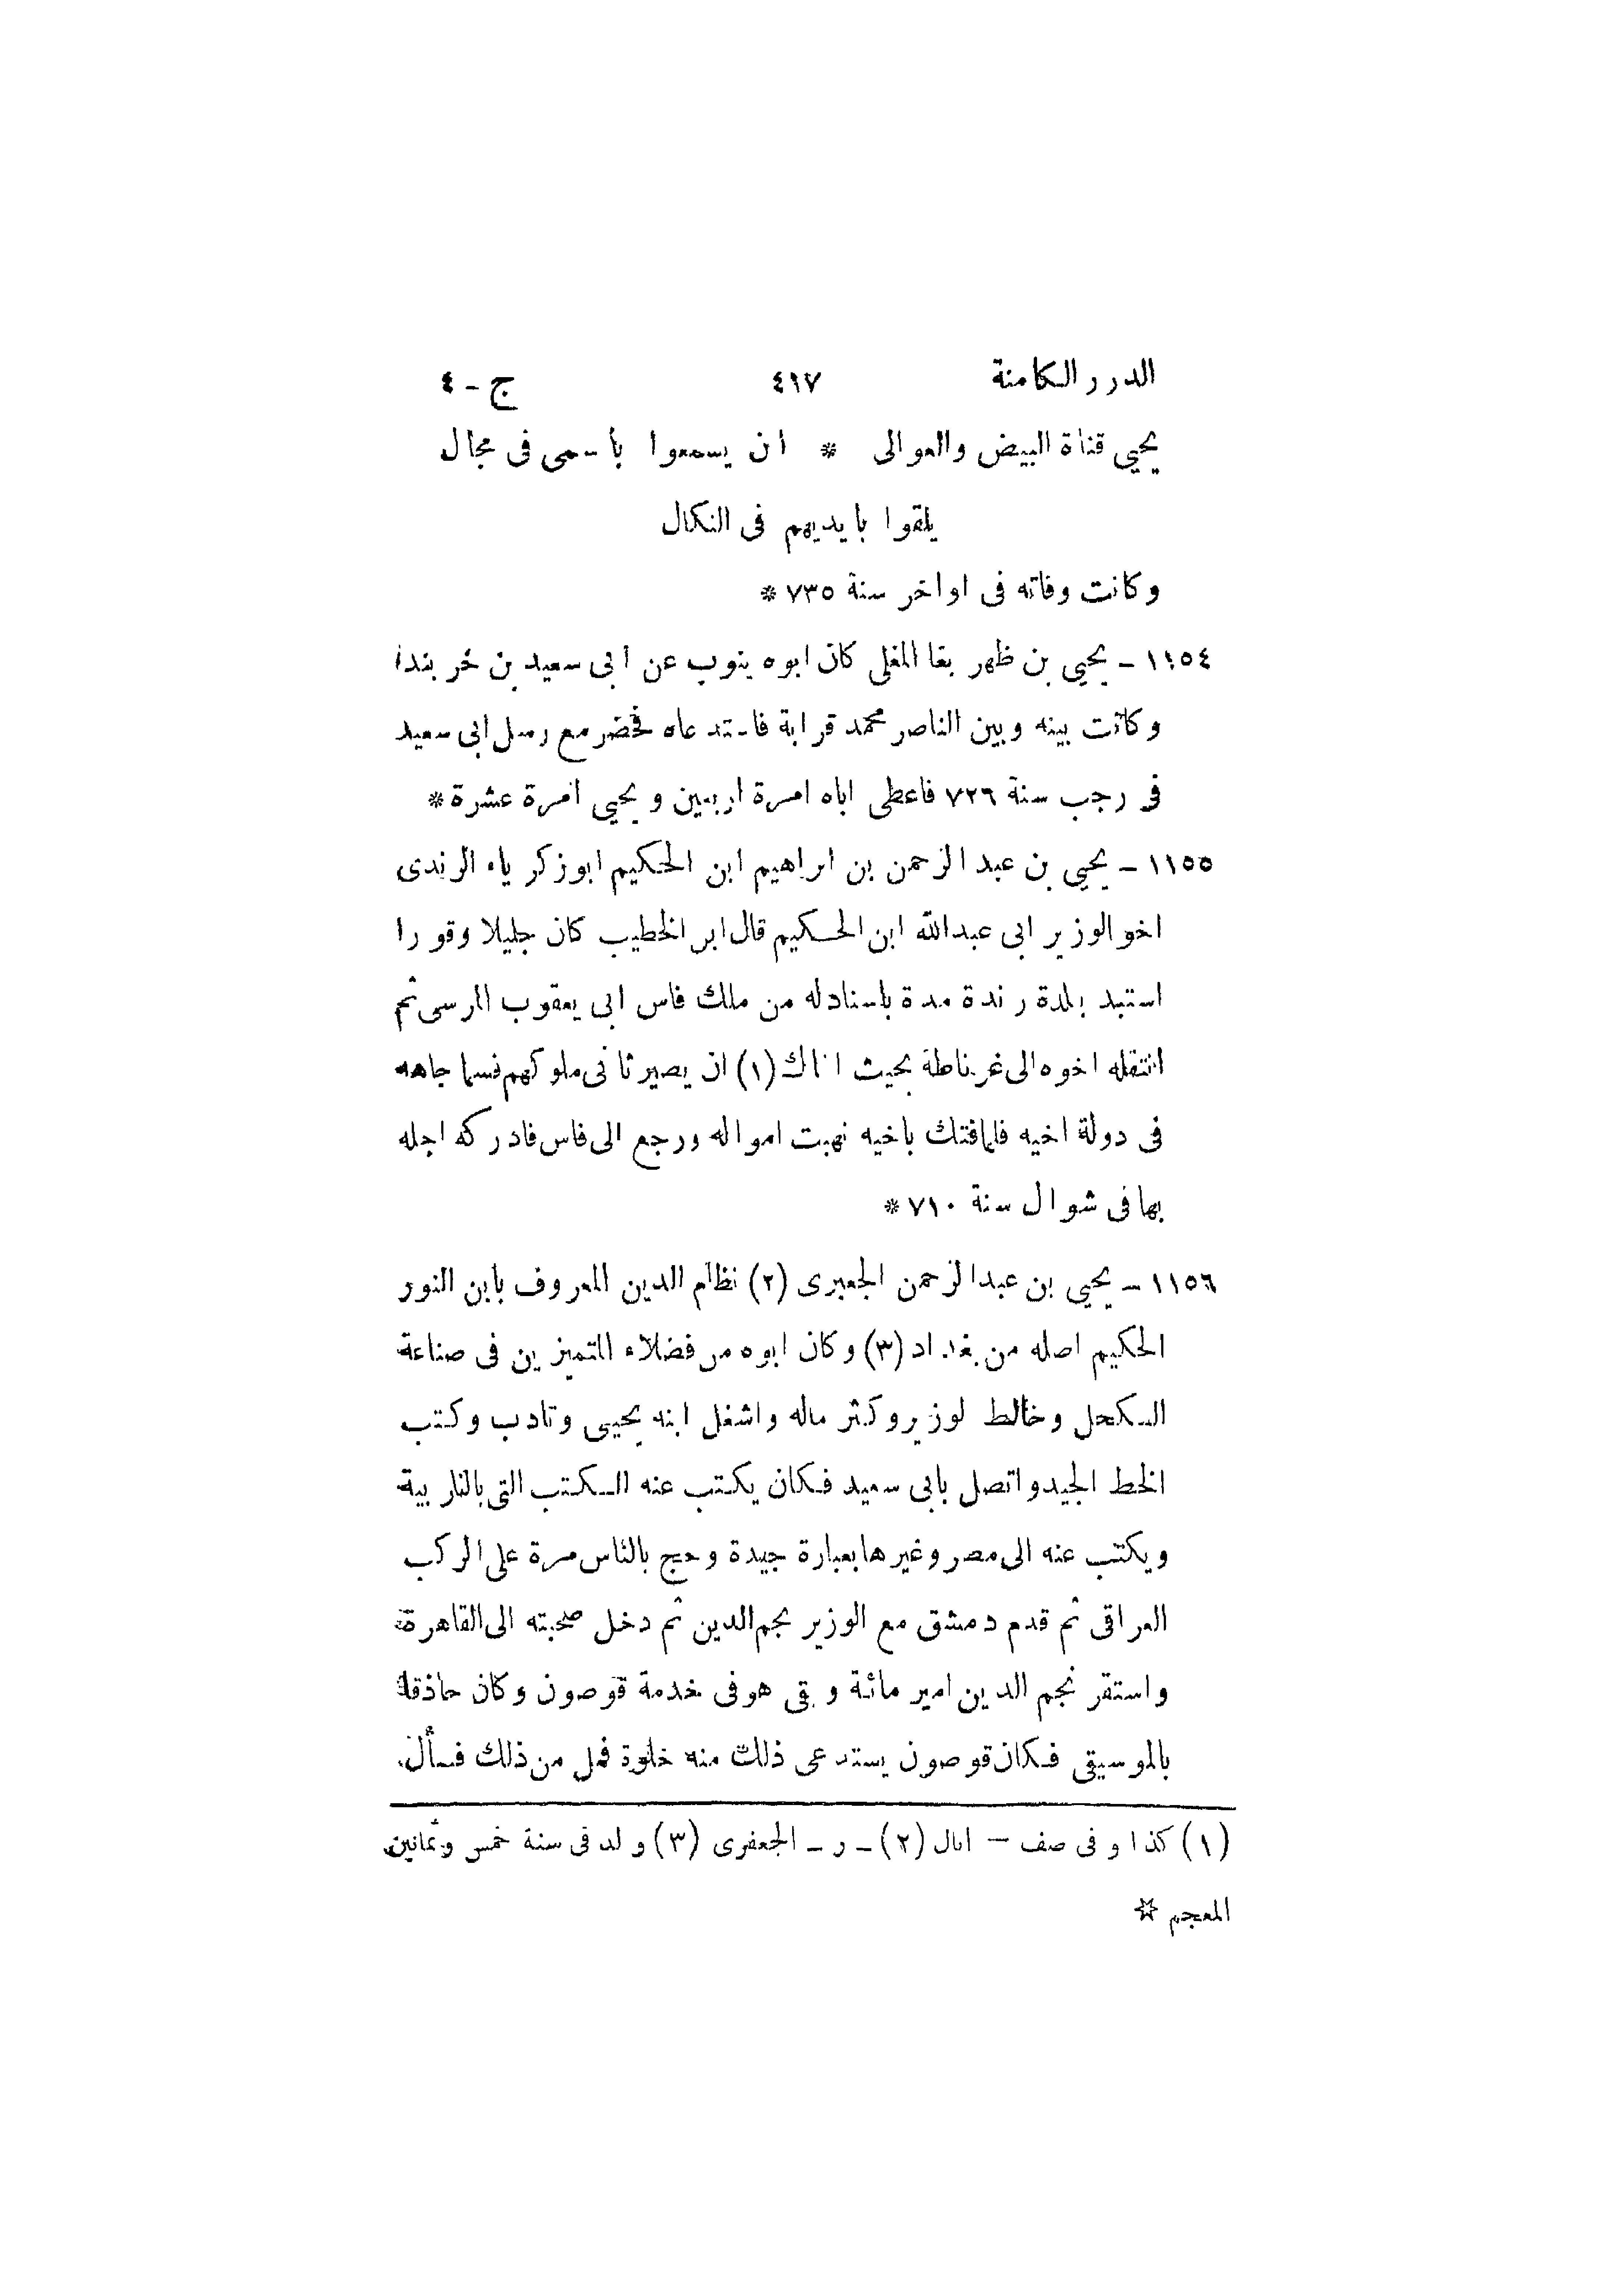 الدرر الكامنة ٤١٧ ج - ٤
يحيى قناة البيض والعوالى * ان يسمعوا باسمى فى مجال
يلقوا بايديهم فى النكال
وكانت وفاته فى اواخر سنة ٧٣٥ *
١١٥٤ - يحيى بن ظهر بغا المغلى كان ابوه ينوب عن ابى سعيد بن خر بندا
وكانت بينه وبين الناصر محمد قرابة فاستدعاه فحضر مع رسل ابى سعيد
فى رجب سنة ٧٢٦ فاعطى اباه امرة اربعين ويحيى امرة عشرة *
١١٥٥ - يحيى بن عبد الرحمن بن ابراهيم ابن الحكيم ابو زكرياء الرندى
اخو الوزير ابى عبدالله ابن الحكيم قال ابن الخطيب كان جليلا وقورا
استبد ببلدة رندة مدة باسنادله من ملك فاس ابى يعقوب المرسى ثم
انتقله اخوه الى غرناطة بحيث (١) ان يصير ثا فى ملوكهم فسما جاهه
فى دولة اخيه فلما فتك باخيه نهبت امواله ورجع الى فاس فادركه اجله
بها فى شوال سنة ٧١٠ *
١١٥٦ - يحيى بن عبد الرحمن الجعبرى (٢) نظام الدين المعروف بابن النور
الحكيم اصله من بغداد (٣) وكان ابوه من فضلاء المتميزين فى صناعة
الكحل وخالط لوزير وكثر ماله واشغل ابنه يحيى وتادب وكتب
الخط الجيد واتصل بابى سعيد فكان يكتب عنه الكتب التى بالتاربية
ويكتب عنه الى مصر وغيرها بعبارة جيدة وحج بالناس مرة على الركب
العراقى ثم قدم دمشق مع الوزير نجم الدين ثم دخل صحبته الى القاهرة
واستقر نجم الدين امير مائة وبقى هو فى خدمة قوصون وكان حاذقا
بالموسيقى فكان قوصون يستدعى ذلك منه خلوة فمل من ذلك فسأل
(١) كذا وفى صف - انال (٢) - ر - الجعفرى (٣) ولد فى سنة خمس وثمانين
المعجم ☆